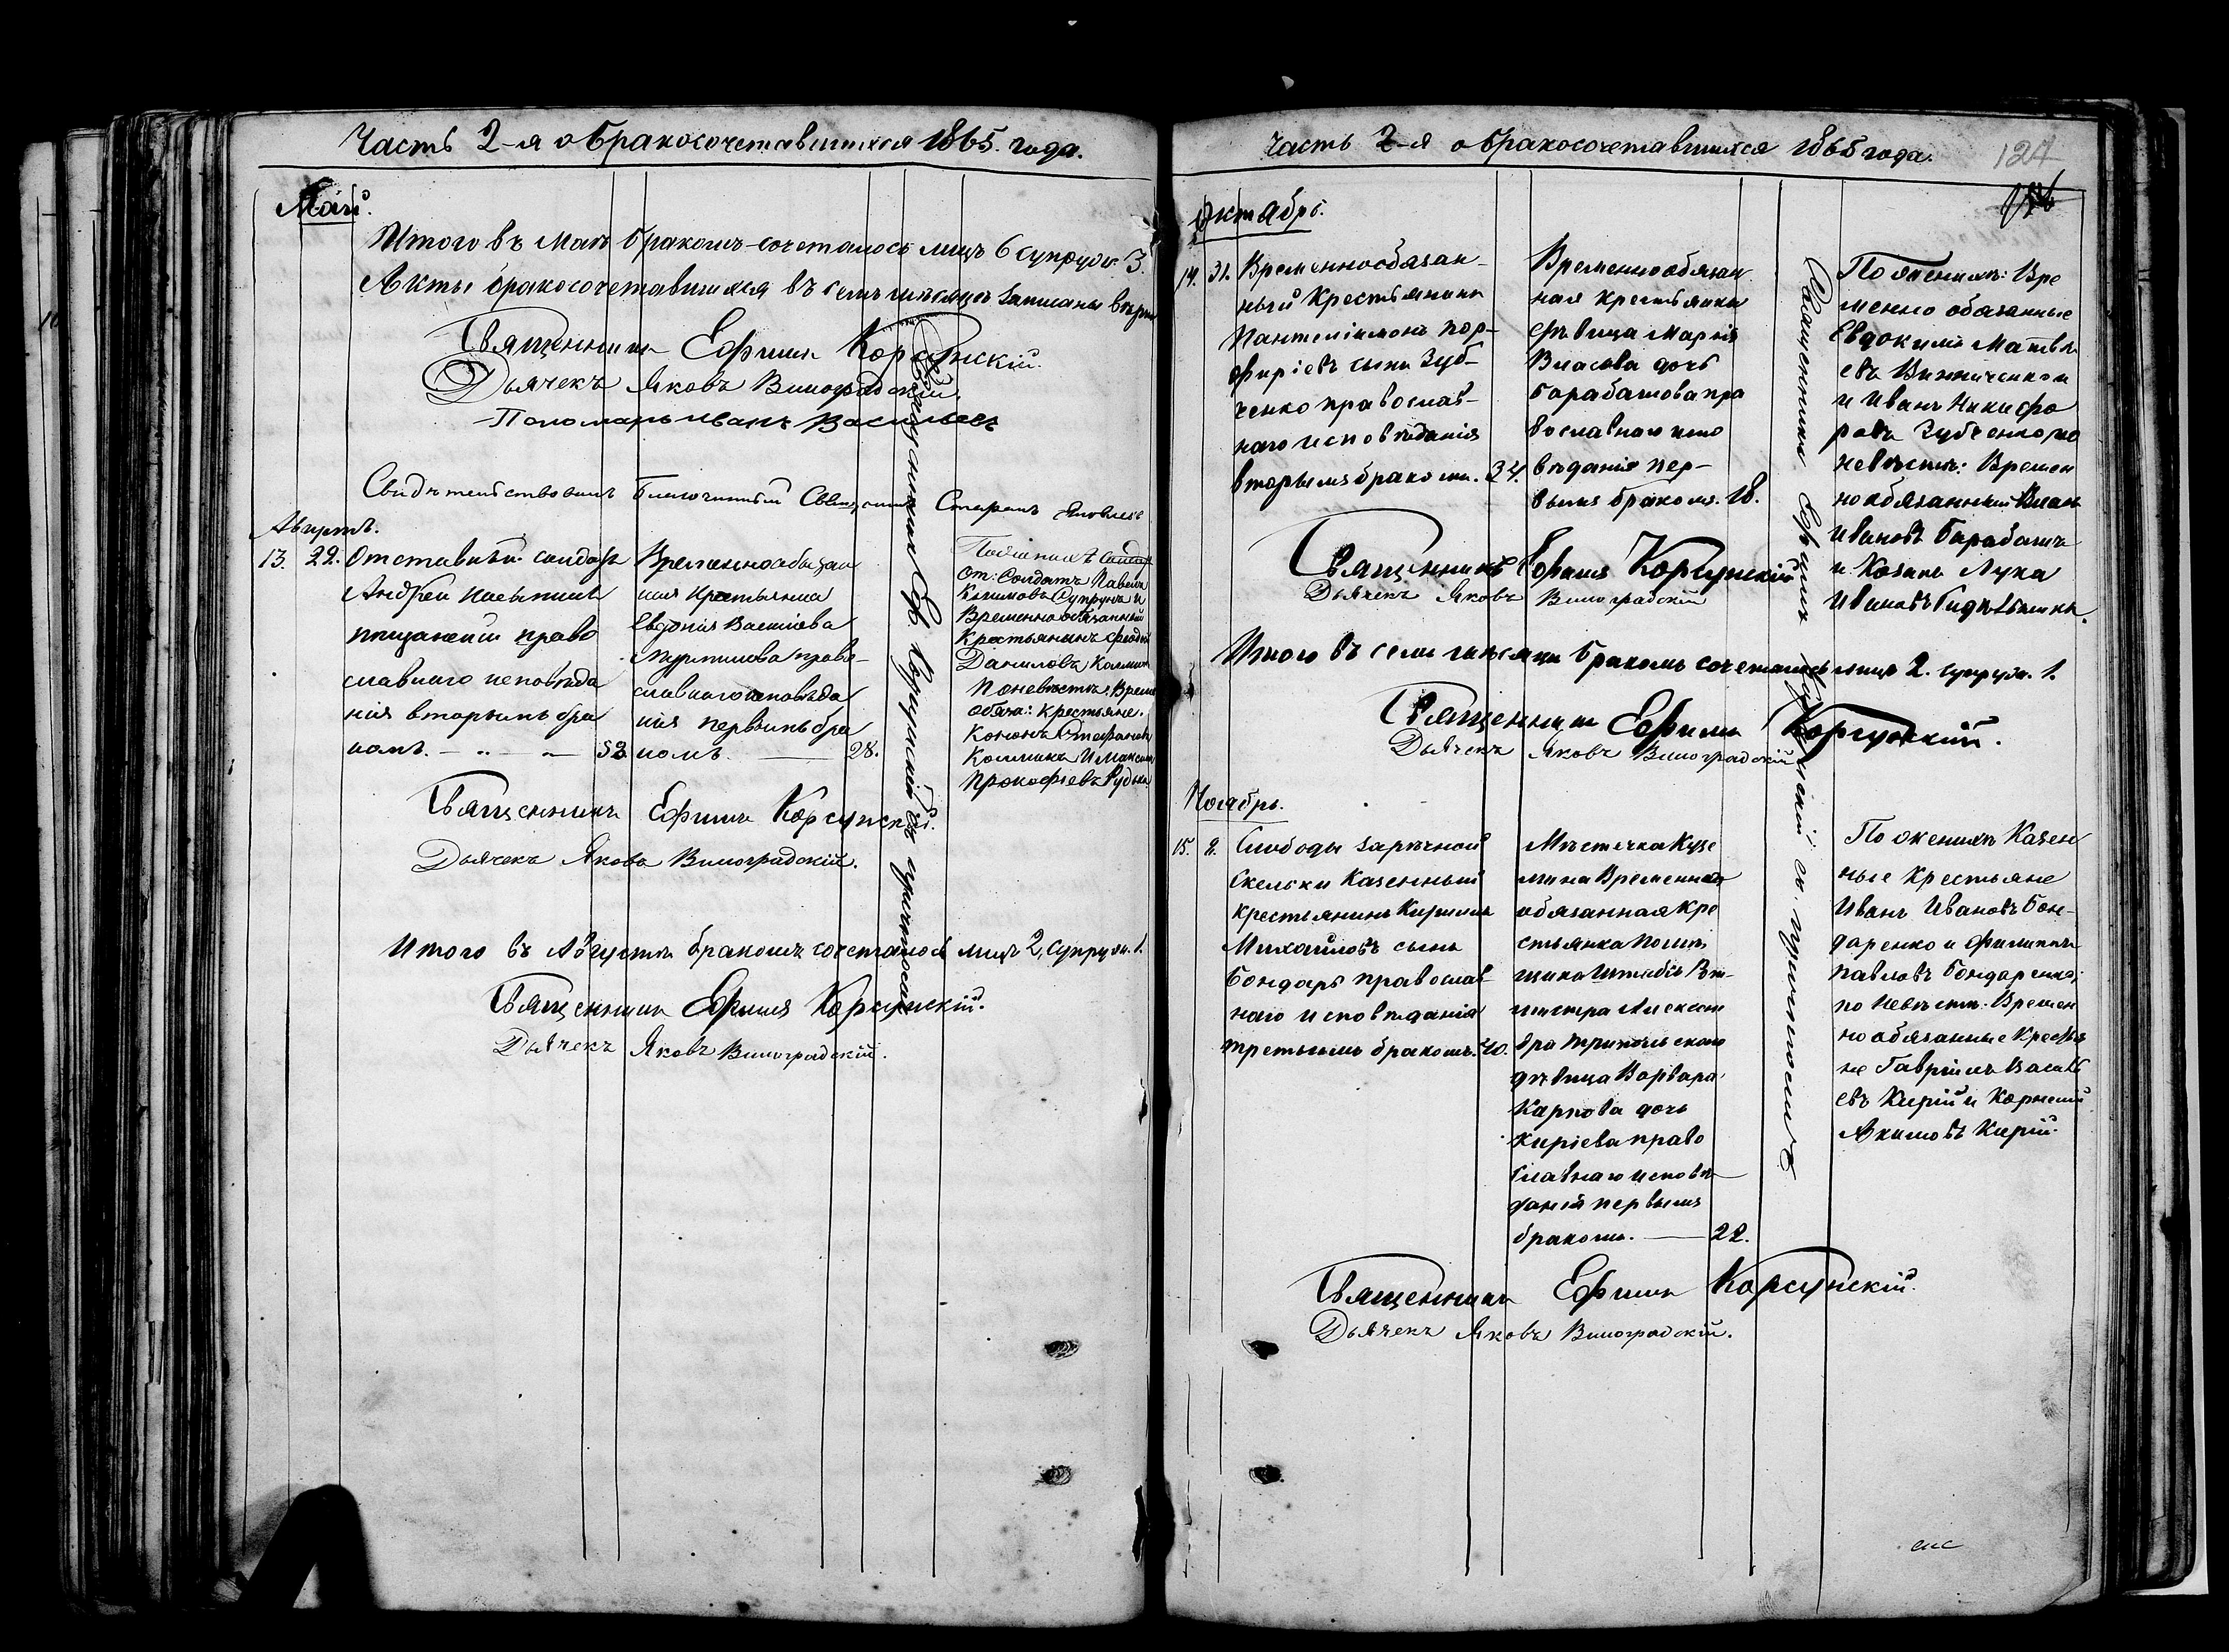 Часть 2-я о бракосочетавшихся 1865. года.
Май.
Итого въ Маѣ бракомъ сочеталось лицъ 6 супруж. 3.
Акты бракосочетавшихся въ семъ мѣсяцѣ записаны вѣрно
Священникъ Ефимъ Корсунскій.
Дьячекъ Яковъ Виноградскій.
Пономарь Иванъ Васильевъ
Свидѣтельствовалъ Благочинный Священникъ Стефанъ
Августъ.
13. 22. Отставный солдатъ
Андрей
православнаго исповѣда
нія вторымъ бра
комъ. 52
Временнообязан
ная Крестьянка
Евдокія Василіева
право-
славнаго исповѣда
нія первымъ бра
комъ. — 28.
Священникъ Ефимъ Корсунскій съ причтомъ
От: Солдатъ Павелъ
Климовъ Супрунъ и
Временно обязанный
Крестьянинъ Феодоръ
Даниловъ
По невѣстѣ: Време
обяза: крестьяне.
Кононъ Стефановъ
и Максимъ
Прокофьевъ Рудька
Священникъ Ефимъ Корсунскій.
Дьячекъ Яковъ Виноградскій.
Итого въ Августѣ бракомъ сочеталось лицъ 2, супруж. 1.
Священникъ Ефимъ Корсунскій.
Дьячекъ Яковъ Виноградскій.
Часть 2-я о бракосочетавшихся 1865 года.
127
Октябрь.
14. 31. Временнообязан-
ный Крестьянинъ
Пантелиимонъ Пор-
фиріевъ сынъ Зуб-
ченко православ-
наго исповѣданія
вторымъ бракомъ. 34.
Временнообязан
ная крестьянка
дѣвица Марія
Власова дочь
Барабашова пра
вославнаго испо
вѣданія пер-
вымъ бракомъ. 18.
Священникъ Ефимъ Корсунскій съ причтомъ
По женихѣ: Вре
менно обязанные
Евдокимъ Матвѣ
евъ Винниченко и
и Иванъ Никифо
ровъ Зубченко по
невѣстѣ: Времен
нообязанный Иванъ
Ивановъ Барабашъ
и Козакъ Лука
Ивановъ
Священникъ Ефимъ Корсунскій
Дьячекъ Яковъ Виноградскій
Итого въ семъ мѣсяцѣ бракомъ сочеталось лицъ 2. супруж. 1.
Священникъ Ефимъ Корсунскій.
Дьячекъ Яковъ Виноградскій
Ноябрь.
15. 8. Слободы Зарѣчной
Скельки Казенный
крестьянинъ Кириллъ
Михайловъ сынъ
Бондарь православ-
наго исповѣданія
третьимъ бракомъ. 40.
Мѣстечка Кузе
мина Временно
обязанная кре
стьянка помѣ
щика Штабсъ Рот-
мистра Алексан
дра
дѣвица Варвара
Карпова дочь
Киріева право
славнаго исповѣ-
данія первымъ
бракомъ. — 22.
По женихѣ Казен
ные Крестьяне
Иванъ Ивановъ Бон-
даренко и Филиппъ
Павловъ Бондаренко;
по невѣстѣ: Времен
но обязанные Крестья
не Гавріилъ Василь
евъ Кирій и Корнилій
Акимовъ Кирій.
Священникъ Ефимъ Корсунскій.
Дьячекъ Яковъ Виноградскій.